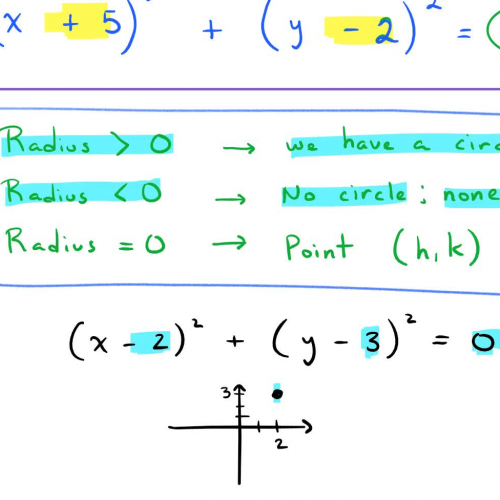 (x + 5)² + (y - 2)² = (
Radius > 0 → we have a circ
Radius < 0 → No circle ; none
Radius = 0 → Point (h,k)
(x - 2)² + (y - 3)² = 0
3
2